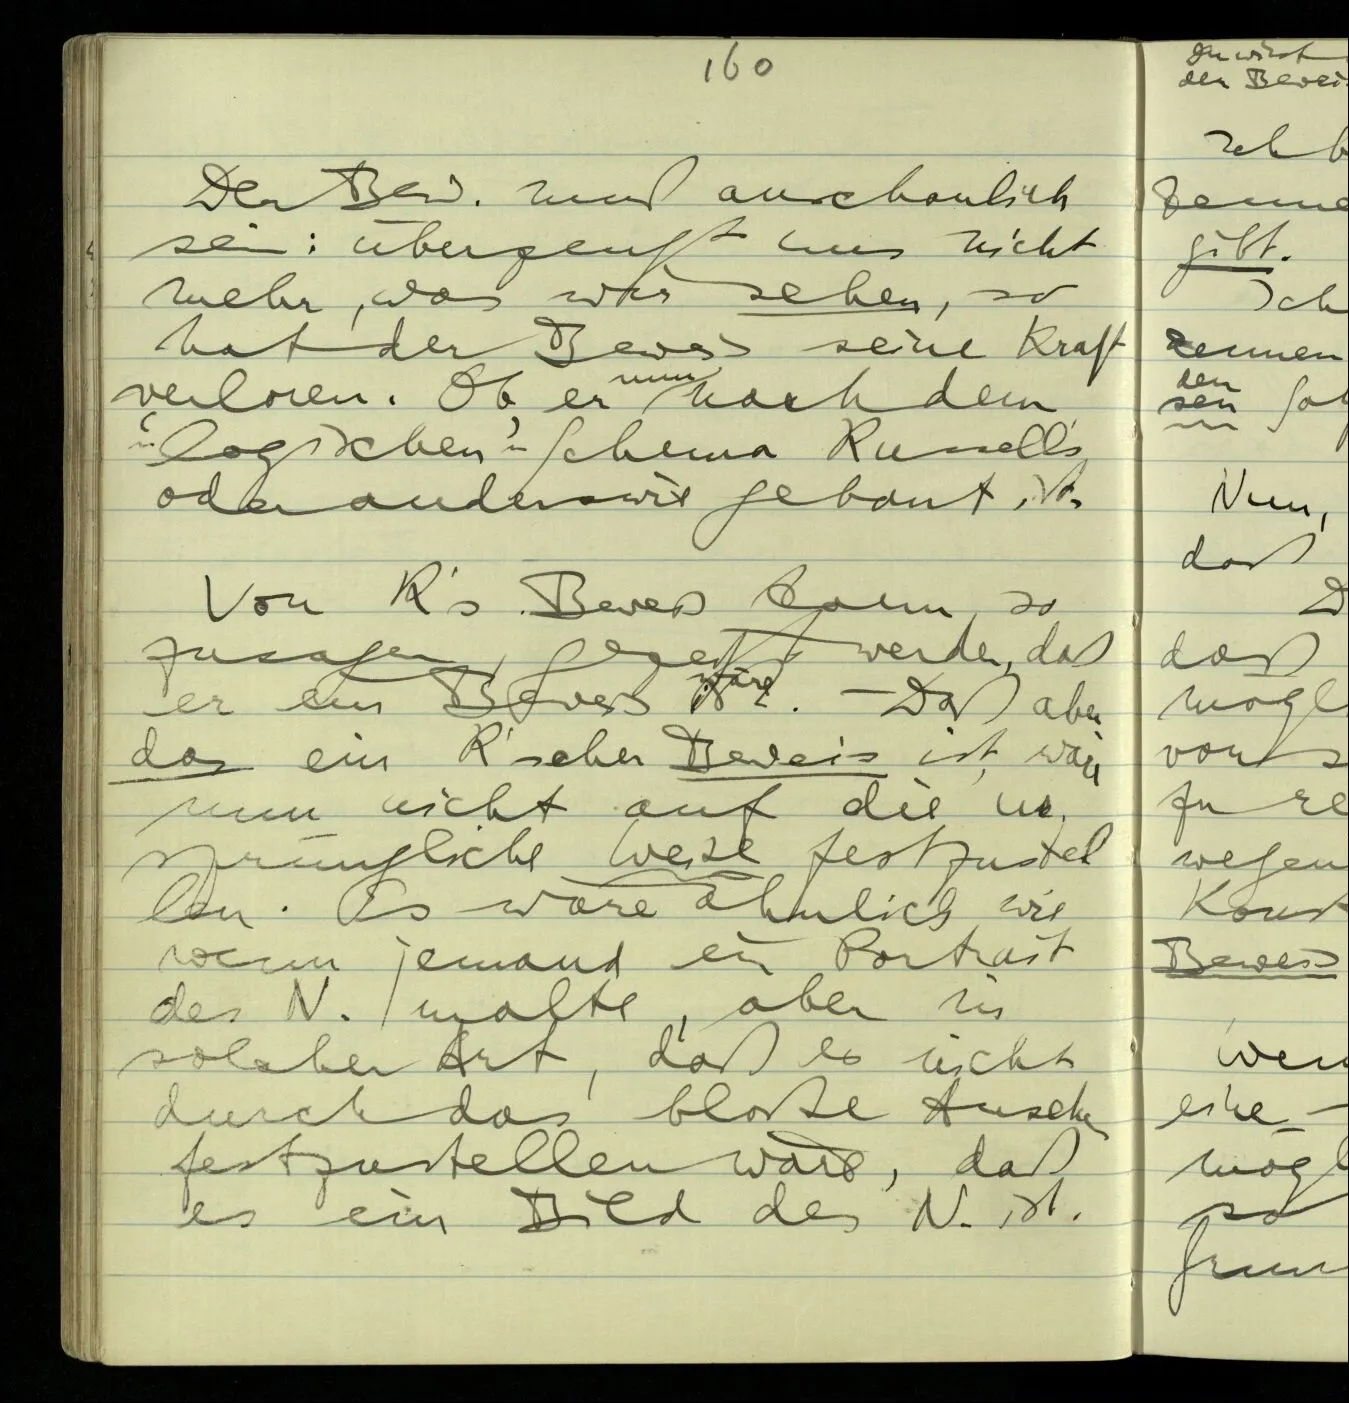 160
Der Bew. muß anschaulich
sein: überzeugt uns nicht
mehr, was wir sehen, so
hat der Beweis seine Kraft
verloren. Ob er nun nach dem
"logischen" Schema Russell's
oder anderswie gebaut ist.
Von R's Beweis kann, so
zusagen, gezeigt werden, daß
er ein Beweis wäre. — Daß aber
das ein R'scher Beweis ist, wäre
nun nicht auf die ur
sprüngliche Weise festzustel
len. Es wäre ähnlich wie
wenn jemand ein Portrait
des N. malte, aber in
solcher Art, daß es nicht
durch das bloße Ansehen
festzustellen wäre, daß
es ein Bild des N. ist.
Du wirst
den Bewei
Ich b
kenne
gibt.
Ich
kennen
den
sen
Nun,
daß
D
daß
mögl
von s
zu re
wegen
Konst
Beweis
Wen
eine
mögl
so